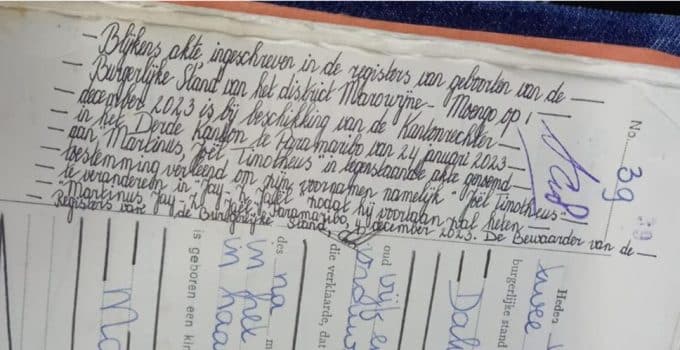 Blijkens akte, ingeschreven in de registers van geboorten van de
Burgerlijke Stand van het district Marowijne - Moengo op 1
december 2023 is bij beschikking van de Kantonrechter
in het Derde Kanton te Paramaribo van 24 januari 2023
aan "Martinus Joël Timotheus" in tegenstaande akte genoemd
toestemming verleend om zijn voornamen namelijk "Joël Timotheus"
te veranderen in "Jay- zodat hij voortaan zal heten
"Martinus Jay- Paramaribo, 4 december 2023. De Bewaarder van de
Registers van de Burgerlijke Stand,
No. 39
39
Heden
twee
burgerlijke stand
Da
oud vijf en
die verklaarde, dat
des na
in het
in haa
is geboren een kin
Ma